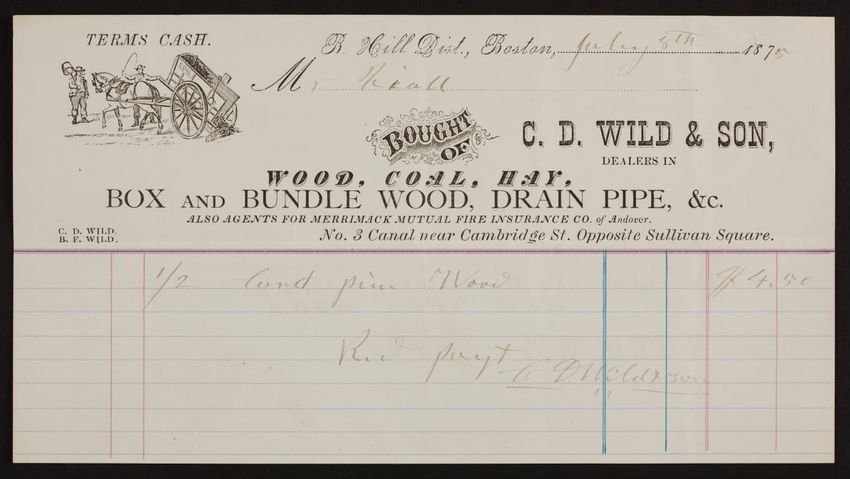 TERMS CASH.
B. Hill Dist., Boston, July 8th 1875
Mr
BOUGHT OF
C. D. WILD & SON,
DEALERS IN
WOOD, COAL, HAY,
BOX AND BUNDLE WOOD, DRAIN PIPE, &c.
ALSO AGENTS FOR MERRIMACK MUTUAL FIRE INSURANCE CO. of Andover.
C. D. WILD.
B. F. WILD.
No. 3 Canal near Cambridge St. Opposite Sullivan Square.
1/2 Cord pine Wood $4.50
Rec payt
C D Wild & Son